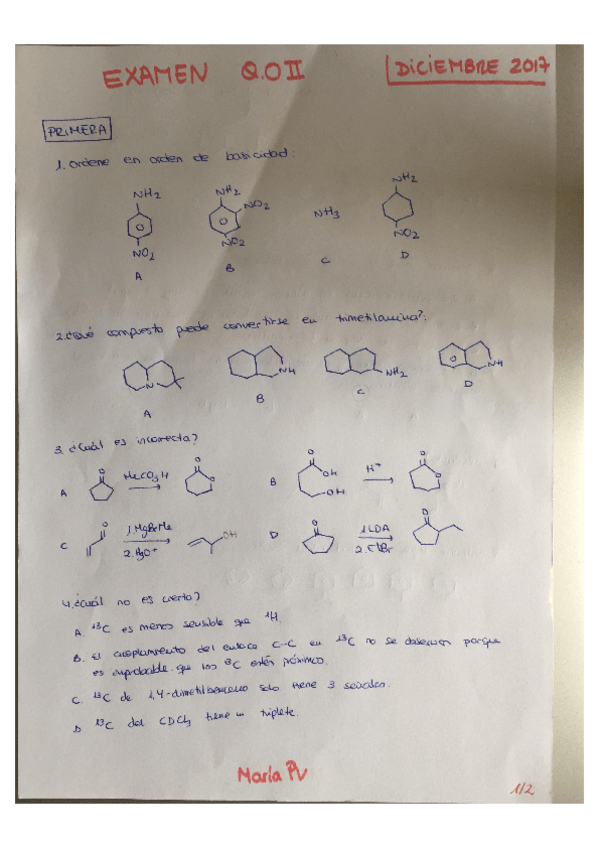 EXAMEN Q.O II
DICIEMBRE 2017
PRIMERA
1. Ordene en orden de basicidad:
NH2 NH2 NO2 NH3 NH2
NO2 NO2 NO2
A B C D
2. ¿Qué compuesto puede convertirse en trimetilamina?:
N NH NH2 NH
A B C D
3. ¿Cuál es incorrecta?
A O MeCO3H O O B O OH OH H+ O O
C O 1. MgBrMe 2. H3O+ OH D O 1. LDA 2. EtBr O
4. ¿Cuál no es cierto?
A. 13C es menos sensible que 1H.
B. El acoplamiento del enlace C-C en 13C no se observa porque
es improbable que los 13C estén próximos.
C. 13C de 1,4-dimetilbenceno solo tiene 3 señales.
D 13C del CDCl3 tiene un triplete.
María PV
1/2